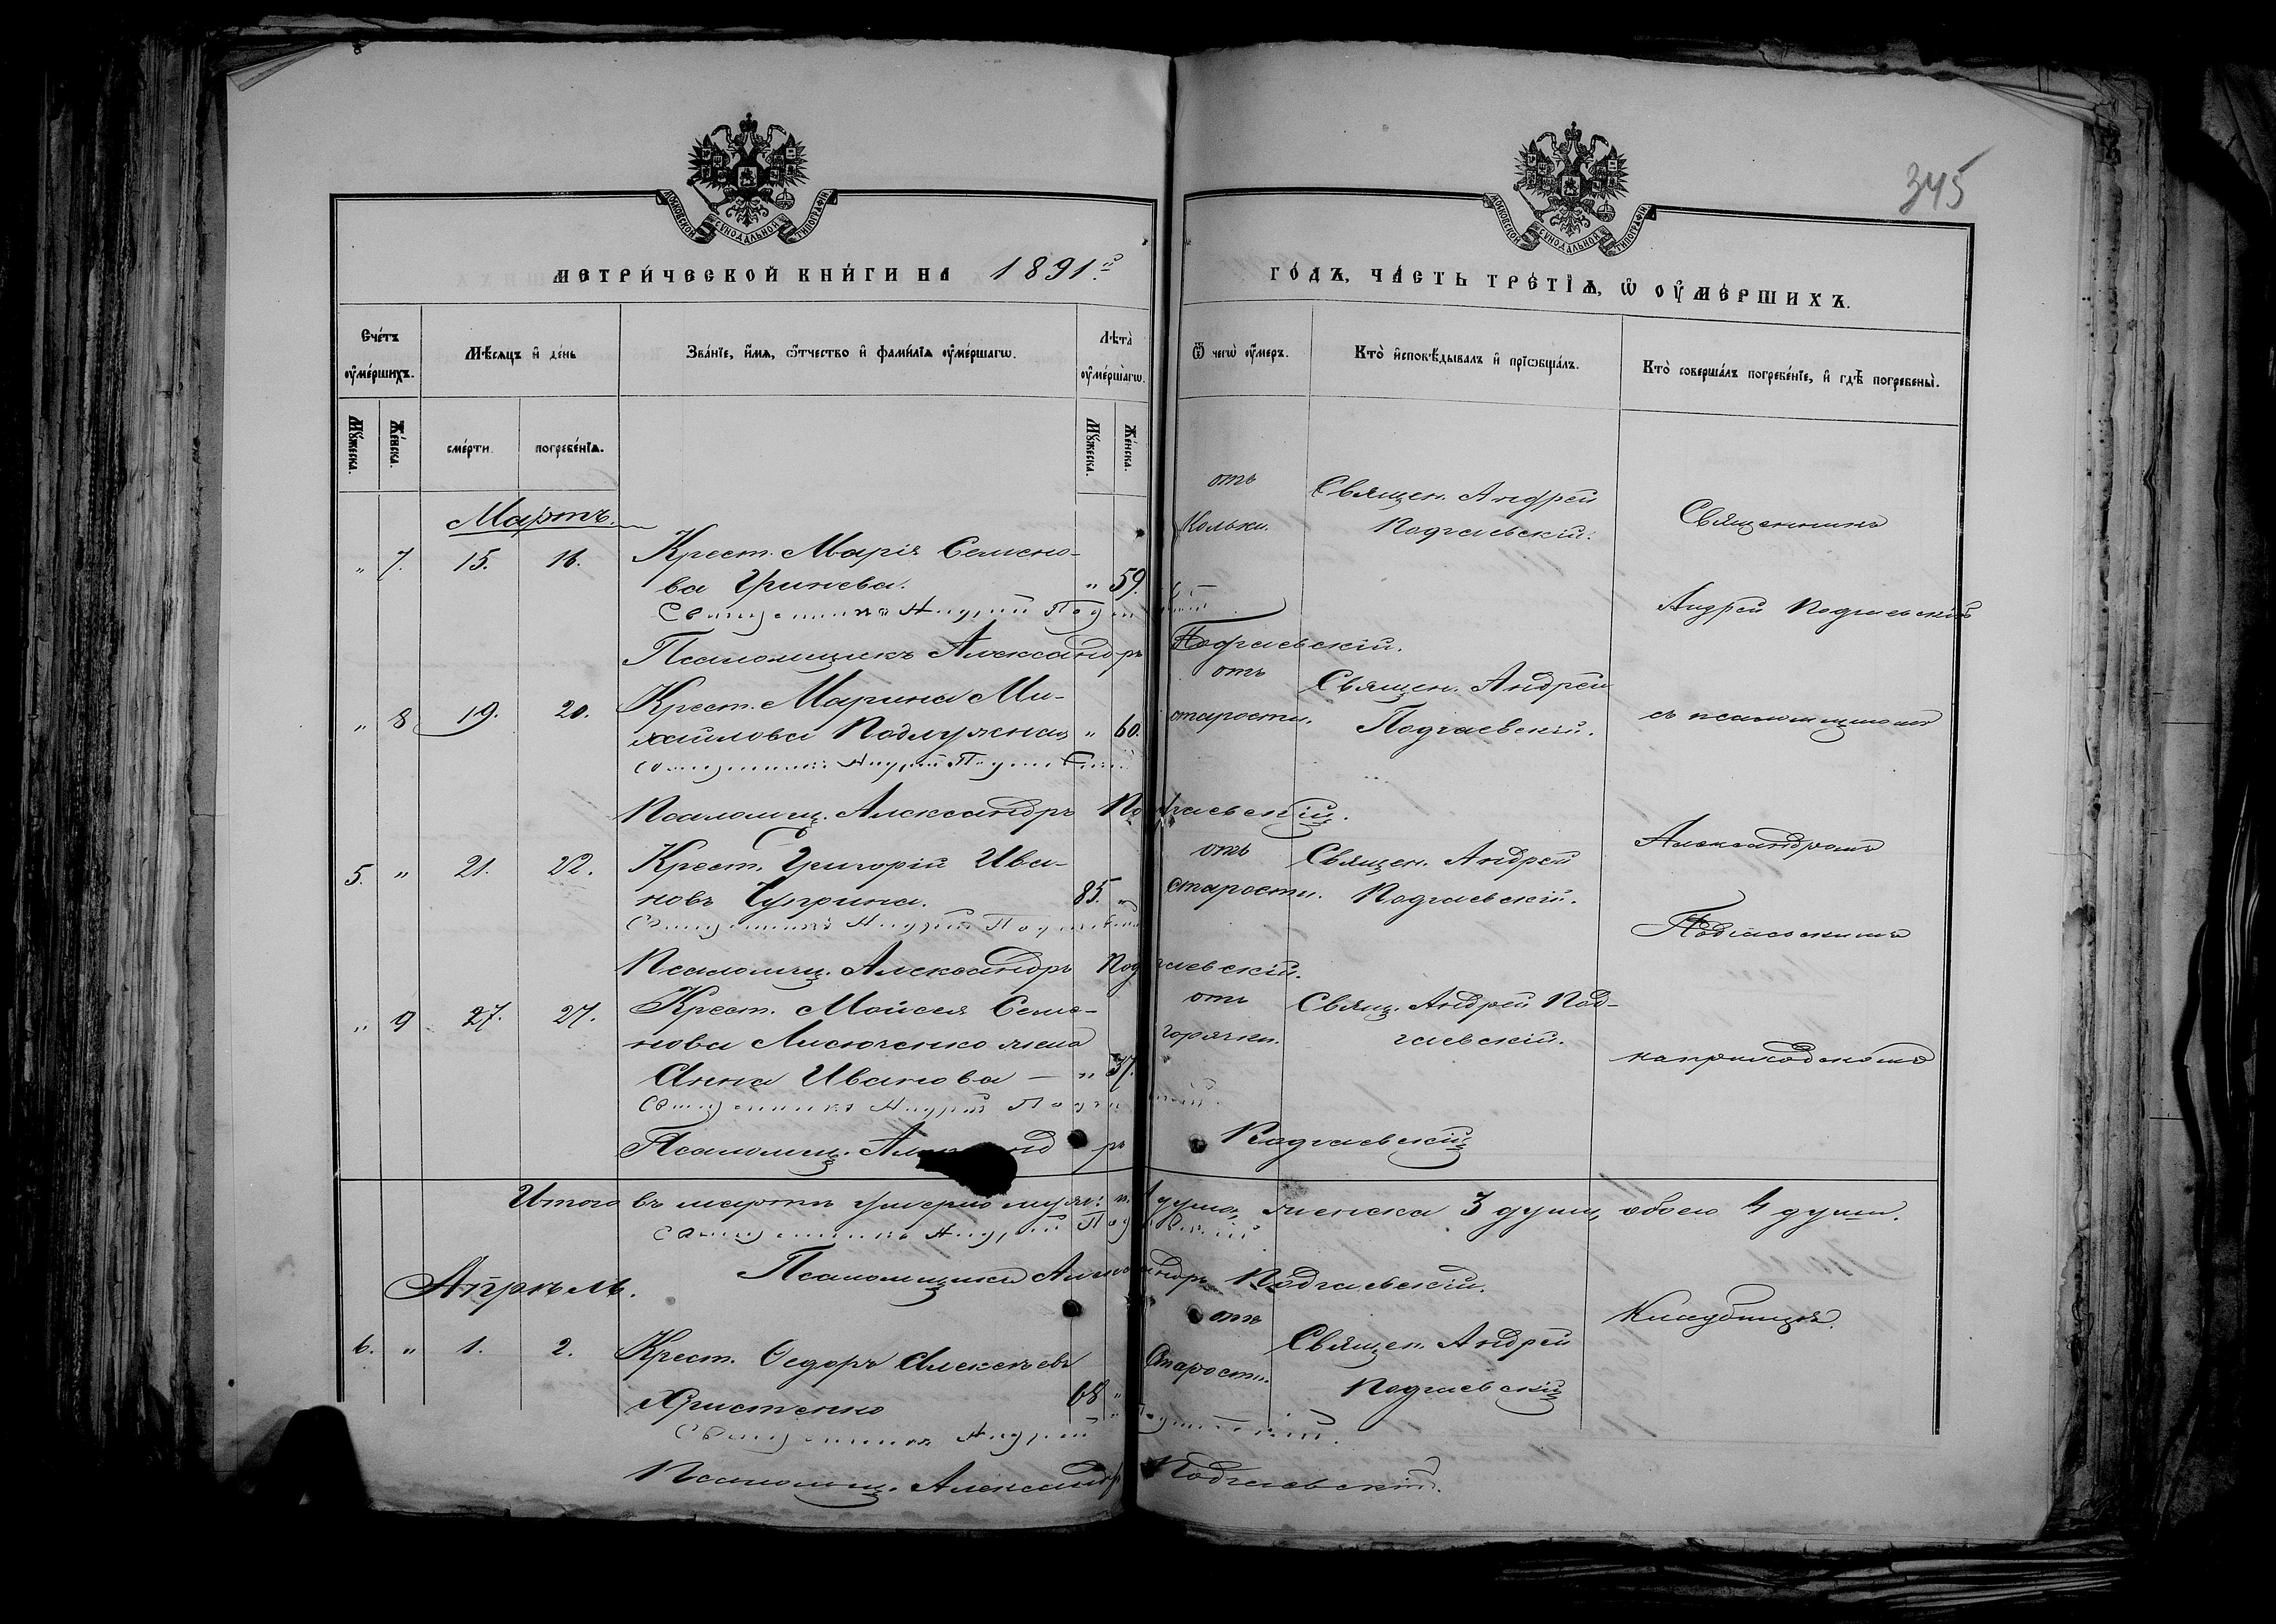 345
МОСКОВСКОЙ СѴНОДАЛЬНОЙ ТИПОГРАФІИ
МОСКОВСКОЙ СѴНОДАЛЬНОЙ ТИПОГРАФІИ
МЕТРИ́ЧЕСКОЙ КНИ́ГИ НА 1891й
ГО́ДЪ, ЧА́СТЬ ТРЕ́ТІѦ, Ѡ҆ ОУ҆МЕ́РШИХЪ.
Сче́тъ оу҆ме́ршихъ.
Мѣ́сяцъ и҆ де́нь
Зва́нїе, и҆́мѧ, ѻ҆́тчество и҆ фами́лїѧ оу҆ме́ршагѡ.
Лѣ́та̀ оу҆ме́ршагѡ.
Ѿ чегѡ̀ оу҆́меръ.
Кто̀ и҆сповѣ́дывалъ и҆ прїѡбща́лъ.
Кто̀ соверша́лъ погребе́нїе, и҆ гдѣ̀ погребены̀.
Мꙋ́жеска.
Же́нска.
сме́рти.
погребе́нїѧ.
Мꙋ́жеска.
Же́нска.
Мартъ.
" 7. 15. 16. Крест. Марія Семено-
ва Гринева. " 59.
отъ
Кольки.
Священ. Андрей
Подгаевскій.
Священникъ
Священникъ Андрей Подгаевскій
Андрей Подгаевскій
Псаломщикъ Александръ Подгаевскій.
" 8 19. 20. Крест. Марина Ми-
хайлова Подлужная " 60.
отъ
старости.
Священ. Андрей
Подгаевскій.
съ псаломщикомъ
Священникъ Андрей Подгаевскій
Псаломщ. Александръ Подгаевскій.
5. " 21. 22. Крест. Григорій Ива-
новъ Чуприна. 85. "
отъ
старости.
Священ. Андрей
Подгаевскій.
Александромъ
Священникъ Андрей Подгаевскій
Подгаевскимъ
Псаломщ. Александръ Подгаевскій.
" 9 27. 27. Крест. Мойсея Семе-
нова Лисюченко жена
Анна Иванова — " 37.
отъ
горячки.
Свящ. Андрей Под-
гаевскій.
на приходскомъ
Священникъ Андрей Подгаевскій.
Псаломщ. Александръ Подгаевскій
Итого въ мартѣ умерло муж: п. 1 душа, женска 3 души, обоего 4 души.
Священникъ Андрей Подгаевскій
Псаломщикъ Александръ Подгаевскій.
Апрѣль.
6. " 1. 2. Крест. Ѳедоръ Алексѣевъ
Христенко 68 "
отъ
Старости.
Священ. Андрей
Подгаевскій
Кладбищѣ.
Священникъ Андрей Подгаевскій.
Псаломщ. Александръ Подгаевскій.